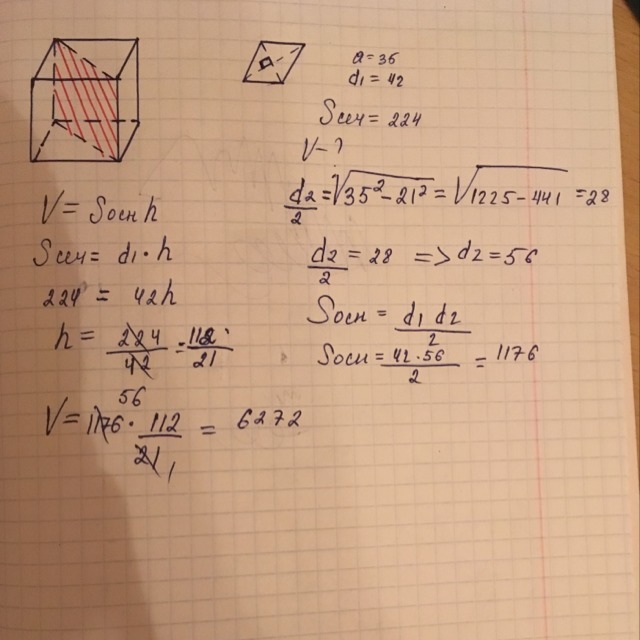 a = 36
d1 = 42
Sсеч = 224
V - ?
d2/2 = √35² - 21² = √1225 - 441 = 28
d2/2 = 28 => d2 = 56
Sосн = d1 d2/2
Sосн = 42 · 56/2 = 1176
V = Sосн h
Sсеч = d1 · h
224 = 42h
h = 224/42 = 112/21
56
V = 1176 · 112/21 = 6272
1